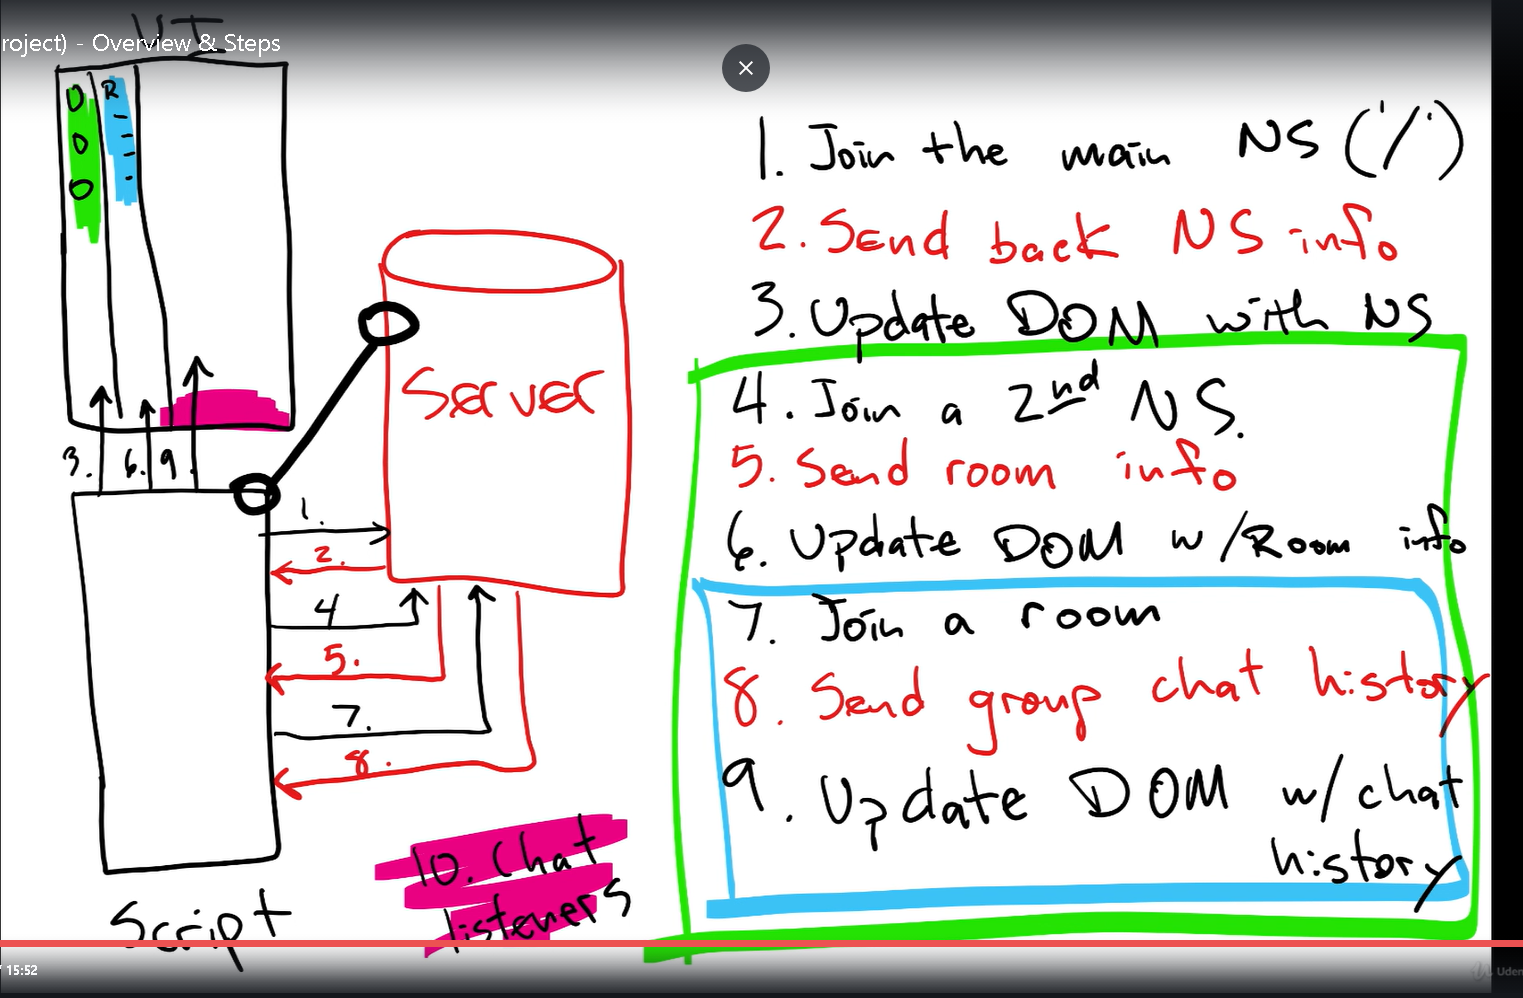 UI
roject) - Overview & Steps
O R
O
O
Server
3. 6. 9.
1.
2.
4
5.
7.
8.
Script
10. Chat
listeners
1. Join the main NS ('/')
2. Send back NS info
3. Update DOM with NS
4. Join a 2nd NS.
5. Send room info
6. Update DOM w/Room info
7. Join a room
8. Send group chat history
9. Update DOM w/ chat
history
15:52